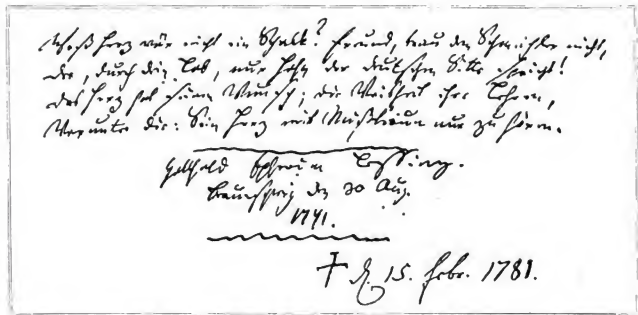 Weß Herz wär nicht ein Schalk? Freund, trau dem Schmeichler nicht,
der, durch dein Lob, nur Hohn der deutschen Sitte spricht!
Das Herz hat seinen Wunsch; die Weisheit ihre Lehren,
Worunter die: Sein Herz mit Mißtraun nur zu hören.
Gotthold Ephraim Lessing.
Braunschweig den 30 Aug.
1771.
† d. 15. Febr. 1781.